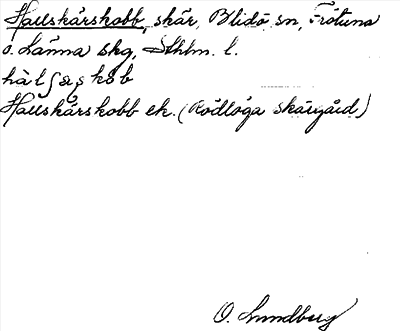 Hallskärskobb, skär, Blidö sn, Frötuna
o. Länna skg, Sthlm. l.
Hallskärskobb ek. (Rödlöga skärgård)
O. Lundberg